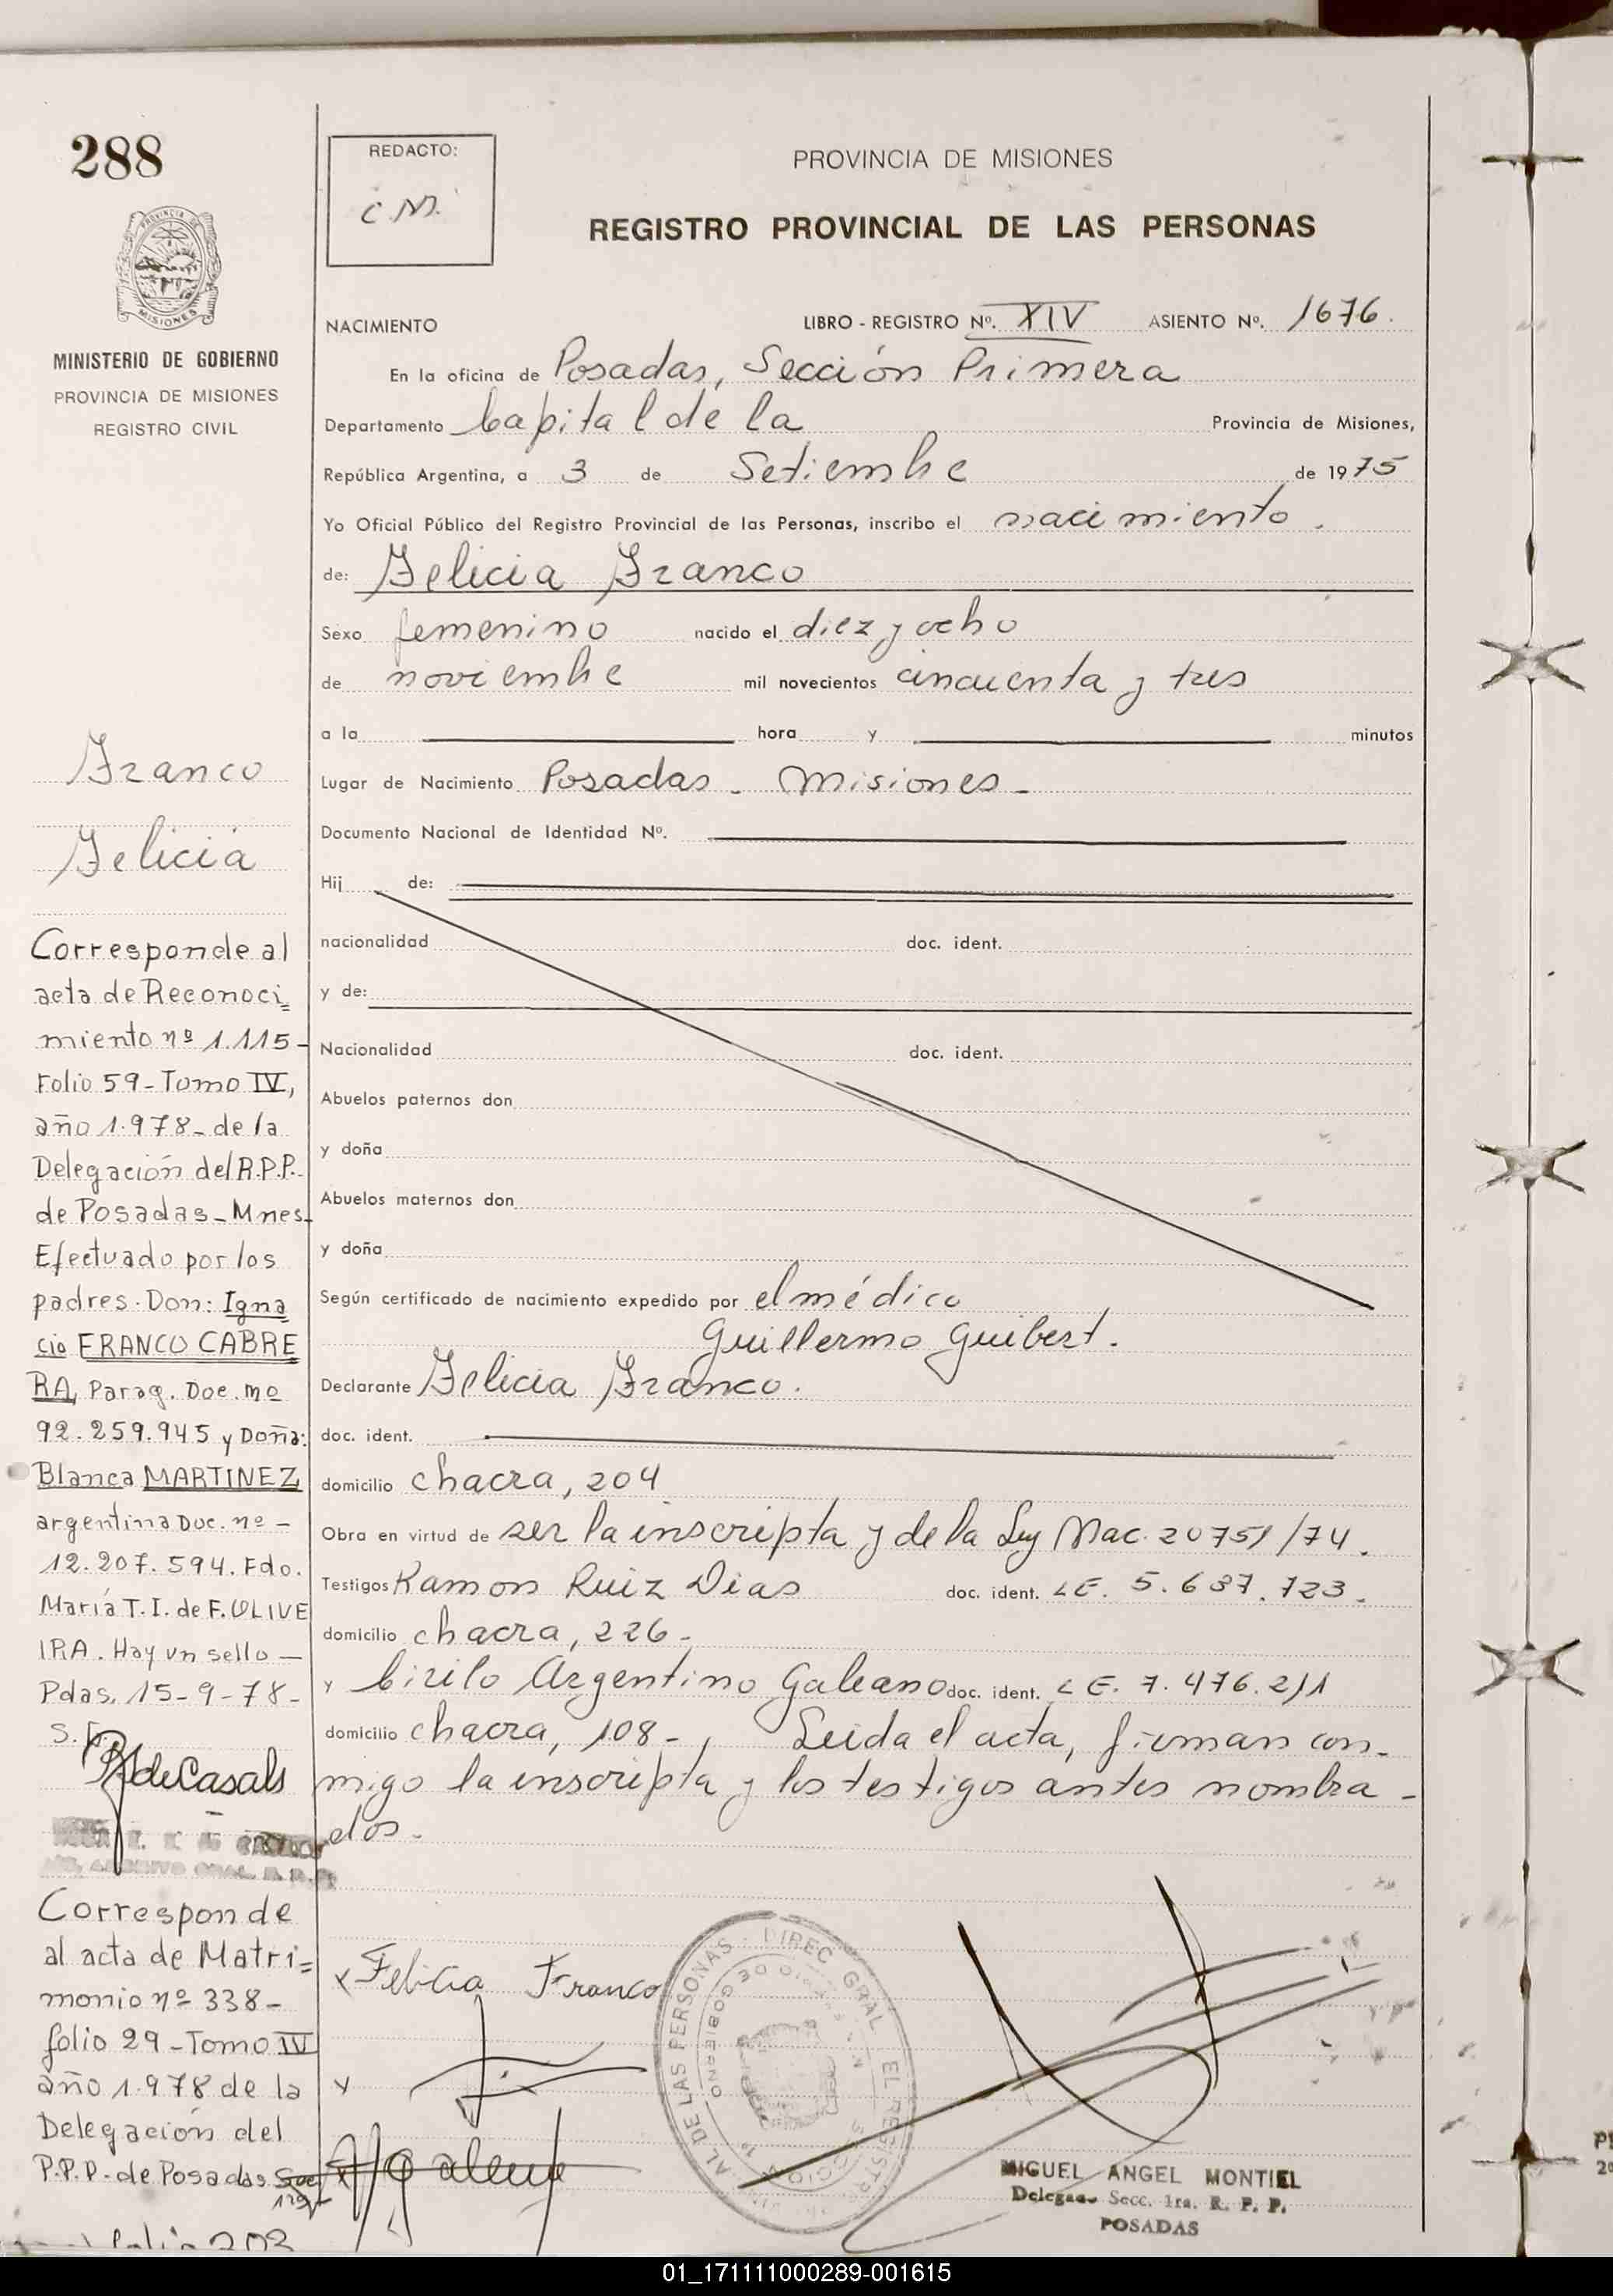 288
REDACTO:
C.M.
PROVINCIA DE MISIONES
REGISTRO PROVINCIAL DE LAS PERSONAS
MISIONES
MINISTERIO DE GOBIERNO
PROVINCIA DE MISIONES
REGISTRO CIVIL
NACIMIENTO LIBRO - REGISTRO Nº. XIV ASIENTO Nº. 1676.
En la oficina de Posadas, Sección Primera
Departamento Capital de la Provincia de Misiones,
República Argentina, a 3 de Setiembre de 1975
Yo Oficial Público del Registro Provincial de las Personas, inscribo el nacimiento.
de: Felicia Franco
Sexo femenino nacido el diez y ocho
de noviembre mil novecientos cincuenta y tres
a la hora y minutos
Lugar de Nacimiento Posadas - Misiones -
Documento Nacional de Identidad Nº.
Hij de:
nacionalidad doc. ident.
y de:
Nacionalidad doc. ident.
Abuelos paternos don
y doña
Abuelos maternos don
y doña
Según certificado de nacimiento expedido por el médico
Guillermo Guibert.
Declarante Felicia Franco.
doc. ident.
domicilio chacra, 204
Obra en virtud de ser la inscripta y de la Ley Nac. 20751/74.
Testigos Ramon Ruiz Dias doc. ident. LE. 5.637.723.
domicilio chacra, 226-
y Cirilo Argentino Galeano doc. ident. LE. 7.476.211
domicilio chacra, 108-, Leida el acta, firman con-
migo la inscripta y los testigos antes nombra-
dos.
Franco
Felicia
Corresponde al
acta de Reconoci=
miento nº 1.115-
Folio 59-Tomo IV,
año 1.978- de la
Delegación del R.P.P.
de Posadas-Mnes.
Efectuado por los
padres. Don: Igna
cio FRANCO CABRE
RA, Parag. Doc. nº
92.259.945 y Doña:
Blanca MARTINEZ
argentina Doc. nº -
12.207.594. Fdo.
María T.I. de F. OLIVE
IRA. Hay un sello -
Pdas. 15-9-78-
de Casals
Corresponde
al acta de Matri=
monio nº 338-
folio 29-Tomo IV
año 1.978 de la
Delegación del
P.P.P. de Posadas
x Felicia Franco
DIREC. GRAL. EL REGISTR
AL DE LAS PERSONAS
MIGUEL ANGEL MONTIEL
Delegado Secc. 1ra. R. P. P.
POSADAS
01_171111000289-001615